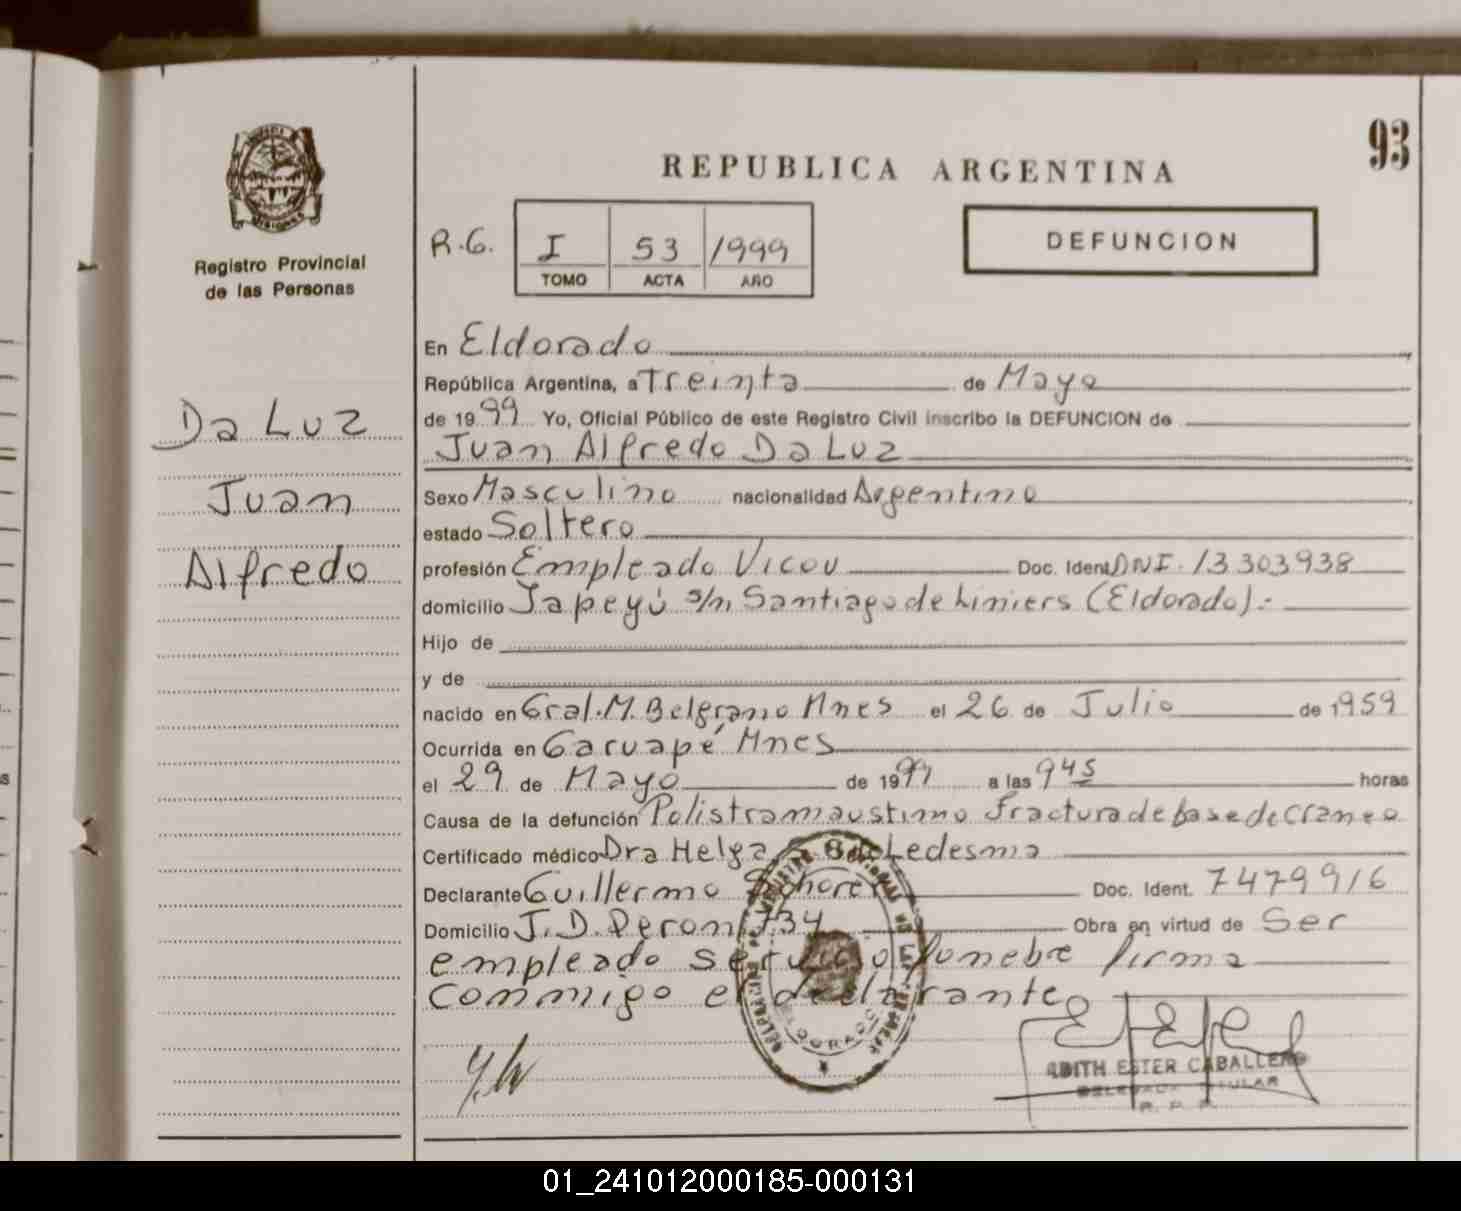 93
REPUBLICA ARGENTINA
MISIONES
Registro Provincial
de las Personas
R.G. I 53 1999
TOMO ACTA AÑO
DEFUNCION
Da Luz
Juan
Alfredo
En Eldorado
República Argentina, a Treinta de Mayo
de 1999 Yo, Oficial Público de este Registro Civil inscribo la DEFUNCION de
Juan Alfredo Da Luz
Sexo Masculino nacionalidad Argentino
estado Soltero
profesión Empleado Vicou Doc. Ident. DNI. 13303938
domicilio Japeyú s/n Santiago de Liniers (Eldorado).-
Hijo de
y de
nacido en Gral. M. Belgrano Mnes el 26 de Julio de 1959
Ocurrida en Garuapé Mnes
el 29 de Mayo de 1999 a las 945 horas
Causa de la defunción Polistramaustimo Fractura de base de craneo
Certificado médico Dra Helga Ledesma
Declarante Guillermo Doc. Ident. 7479916
Domicilio J. D. Peron 734 Obra en virtud de Ser
empleado servicio funebre firma
conmigo el declarante
ELDORADO
EDITH ESTER CABALLERO
DELEGADA TITULAR
R. P. P.
01_241012000185-000131